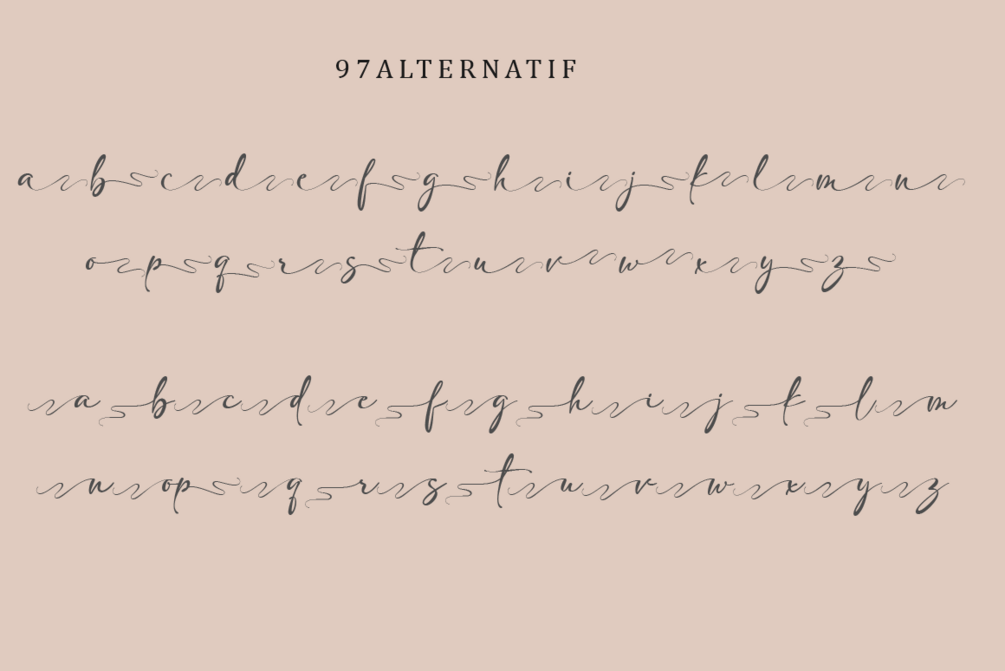 97ALTERNATIF
abcdefghijklmn
opqrstuvwxyz
abcdefghijklm
nopqrstuvwxyz